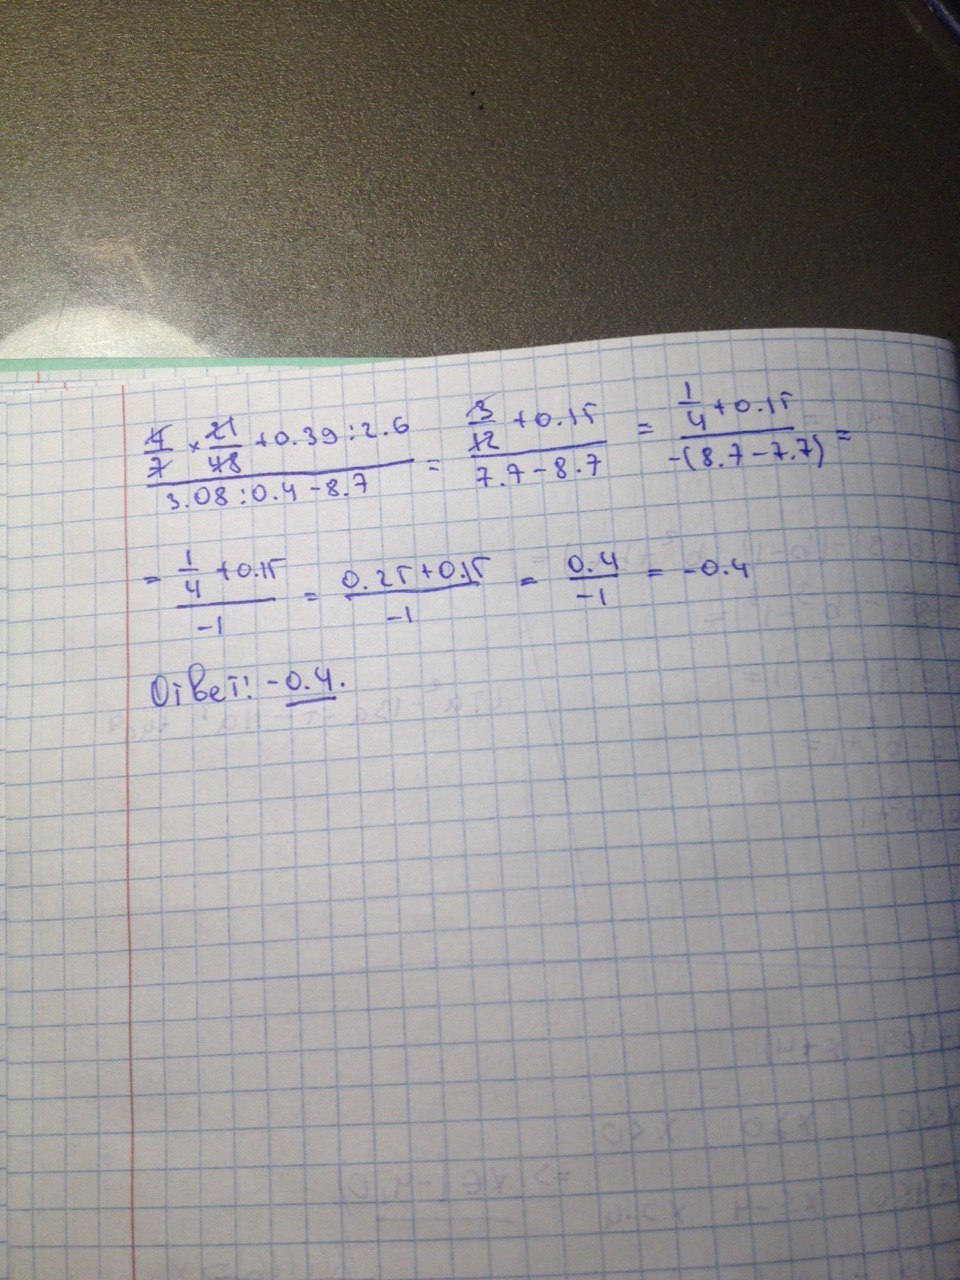 4/7 × 21/48 + 0.39 : 2.6 / 3.08 : 0.4 - 8.7 = 3/12 + 0.15 / 7.7 - 8.7 = 1/4 + 0.15 / -(8.7 - 7.7) =
= 1/4 + 0.15 / -1 = 0.25 + 0.15 / -1 = 0.4 / -1 = -0.4
Ответ: -0.4.